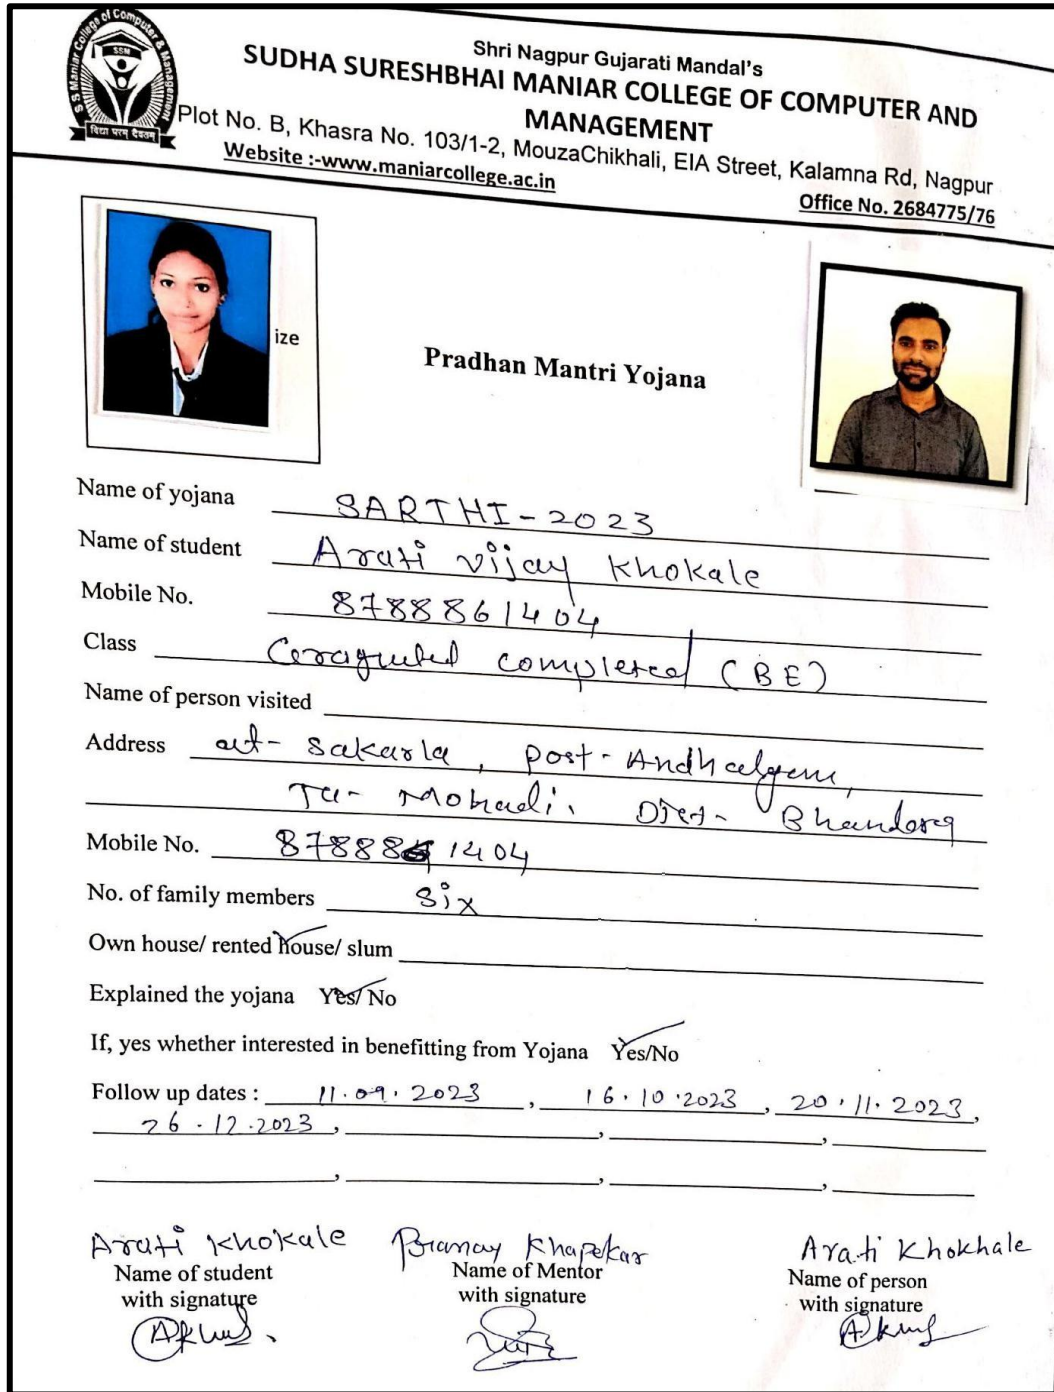 S S Maniar College of Computer & Management
SSM
विद्या परम् दैवतम्
Shri Nagpur Gujarati Mandal's
SUDHA SURESHBHAI MANIAR COLLEGE OF COMPUTER AND
MANAGEMENT
Plot No. B, Khasra No. 103/1-2, MouzaChikhali, EIA Street, Kalamna Rd, Nagpur
Website :-www.maniarcollege.ac.in
Office No. 2684775/76
ize
Pradhan Mantri Yojana
Name of yojana SARTHI-2023
Name of student Arati vijay Khokale
Mobile No. 8788861404
Class completed (BE)
Name of person visited
Address at- Sakarla, post-Andhalgaon,
Ta- Mohadi. Dist- Bhandara
Mobile No. 87888 1404
No. of family members Six
Own house/ rented house/ slum
Explained the yojana Yes/ No
If, yes whether interested in benefitting from Yojana Yes/No
Follow up dates : 11.09.2023, 16.10.2023, 20.11.2023,
26.12.2023, , ,
, , ,
Arati Khokale Pranay Khapekar Arati Khokhale
Name of student Name of Mentor Name of person
with signature with signature with signature